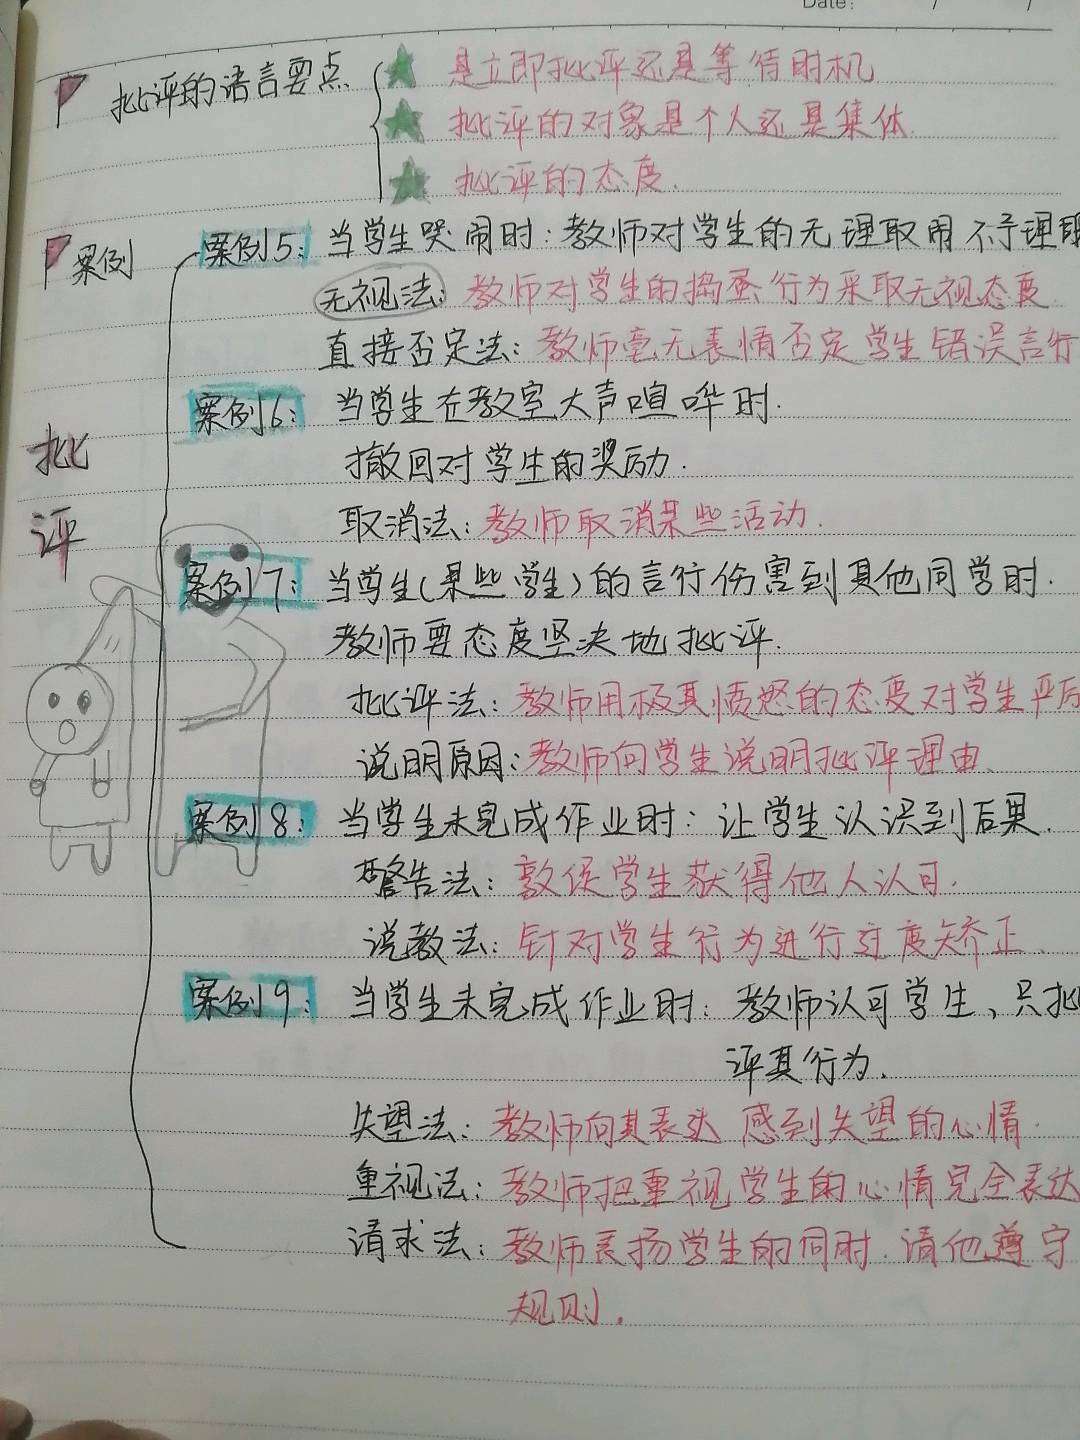 Date: / /
批评的语言要点
★ 是立即批评还是等待时机
★ 批评的对象是个人还是集体.
★ 批评的态度.
案例
批评
案例5: 当学生哭闹时: 教师对学生的无理取闹不予理
无视法: 教师对学生的捣蛋行为采取无视态度
直接否定法: 教师毫无表情否定学生错误言行
案例6: 当学生在教室大声喧哗时.
撤回对学生的奖励.
取消法: 教师取消某些活动.
案例7: 当学生(某些学生)的言行伤害到其他同学时.
教师要态度坚决地批评.
批评法: 教师用极其愤怒的态度对学生严厉
说明原因: 教师向学生说明批评理由.
案例8: 当学生未完成作业时: 让学生认识到后果.
警告法: 敦促学生获得他人认可.
说教法: 针对学生行为进行过度矫正.
案例9: 当学生未完成作业时: 教师认可学生、只批
评其行为.
失望法: 教师向其表达 感到失望的心情.
重视法: 教师把重视学生的心情完全表达
请求法: 教师表扬学生的同时.请他遵守
规则.